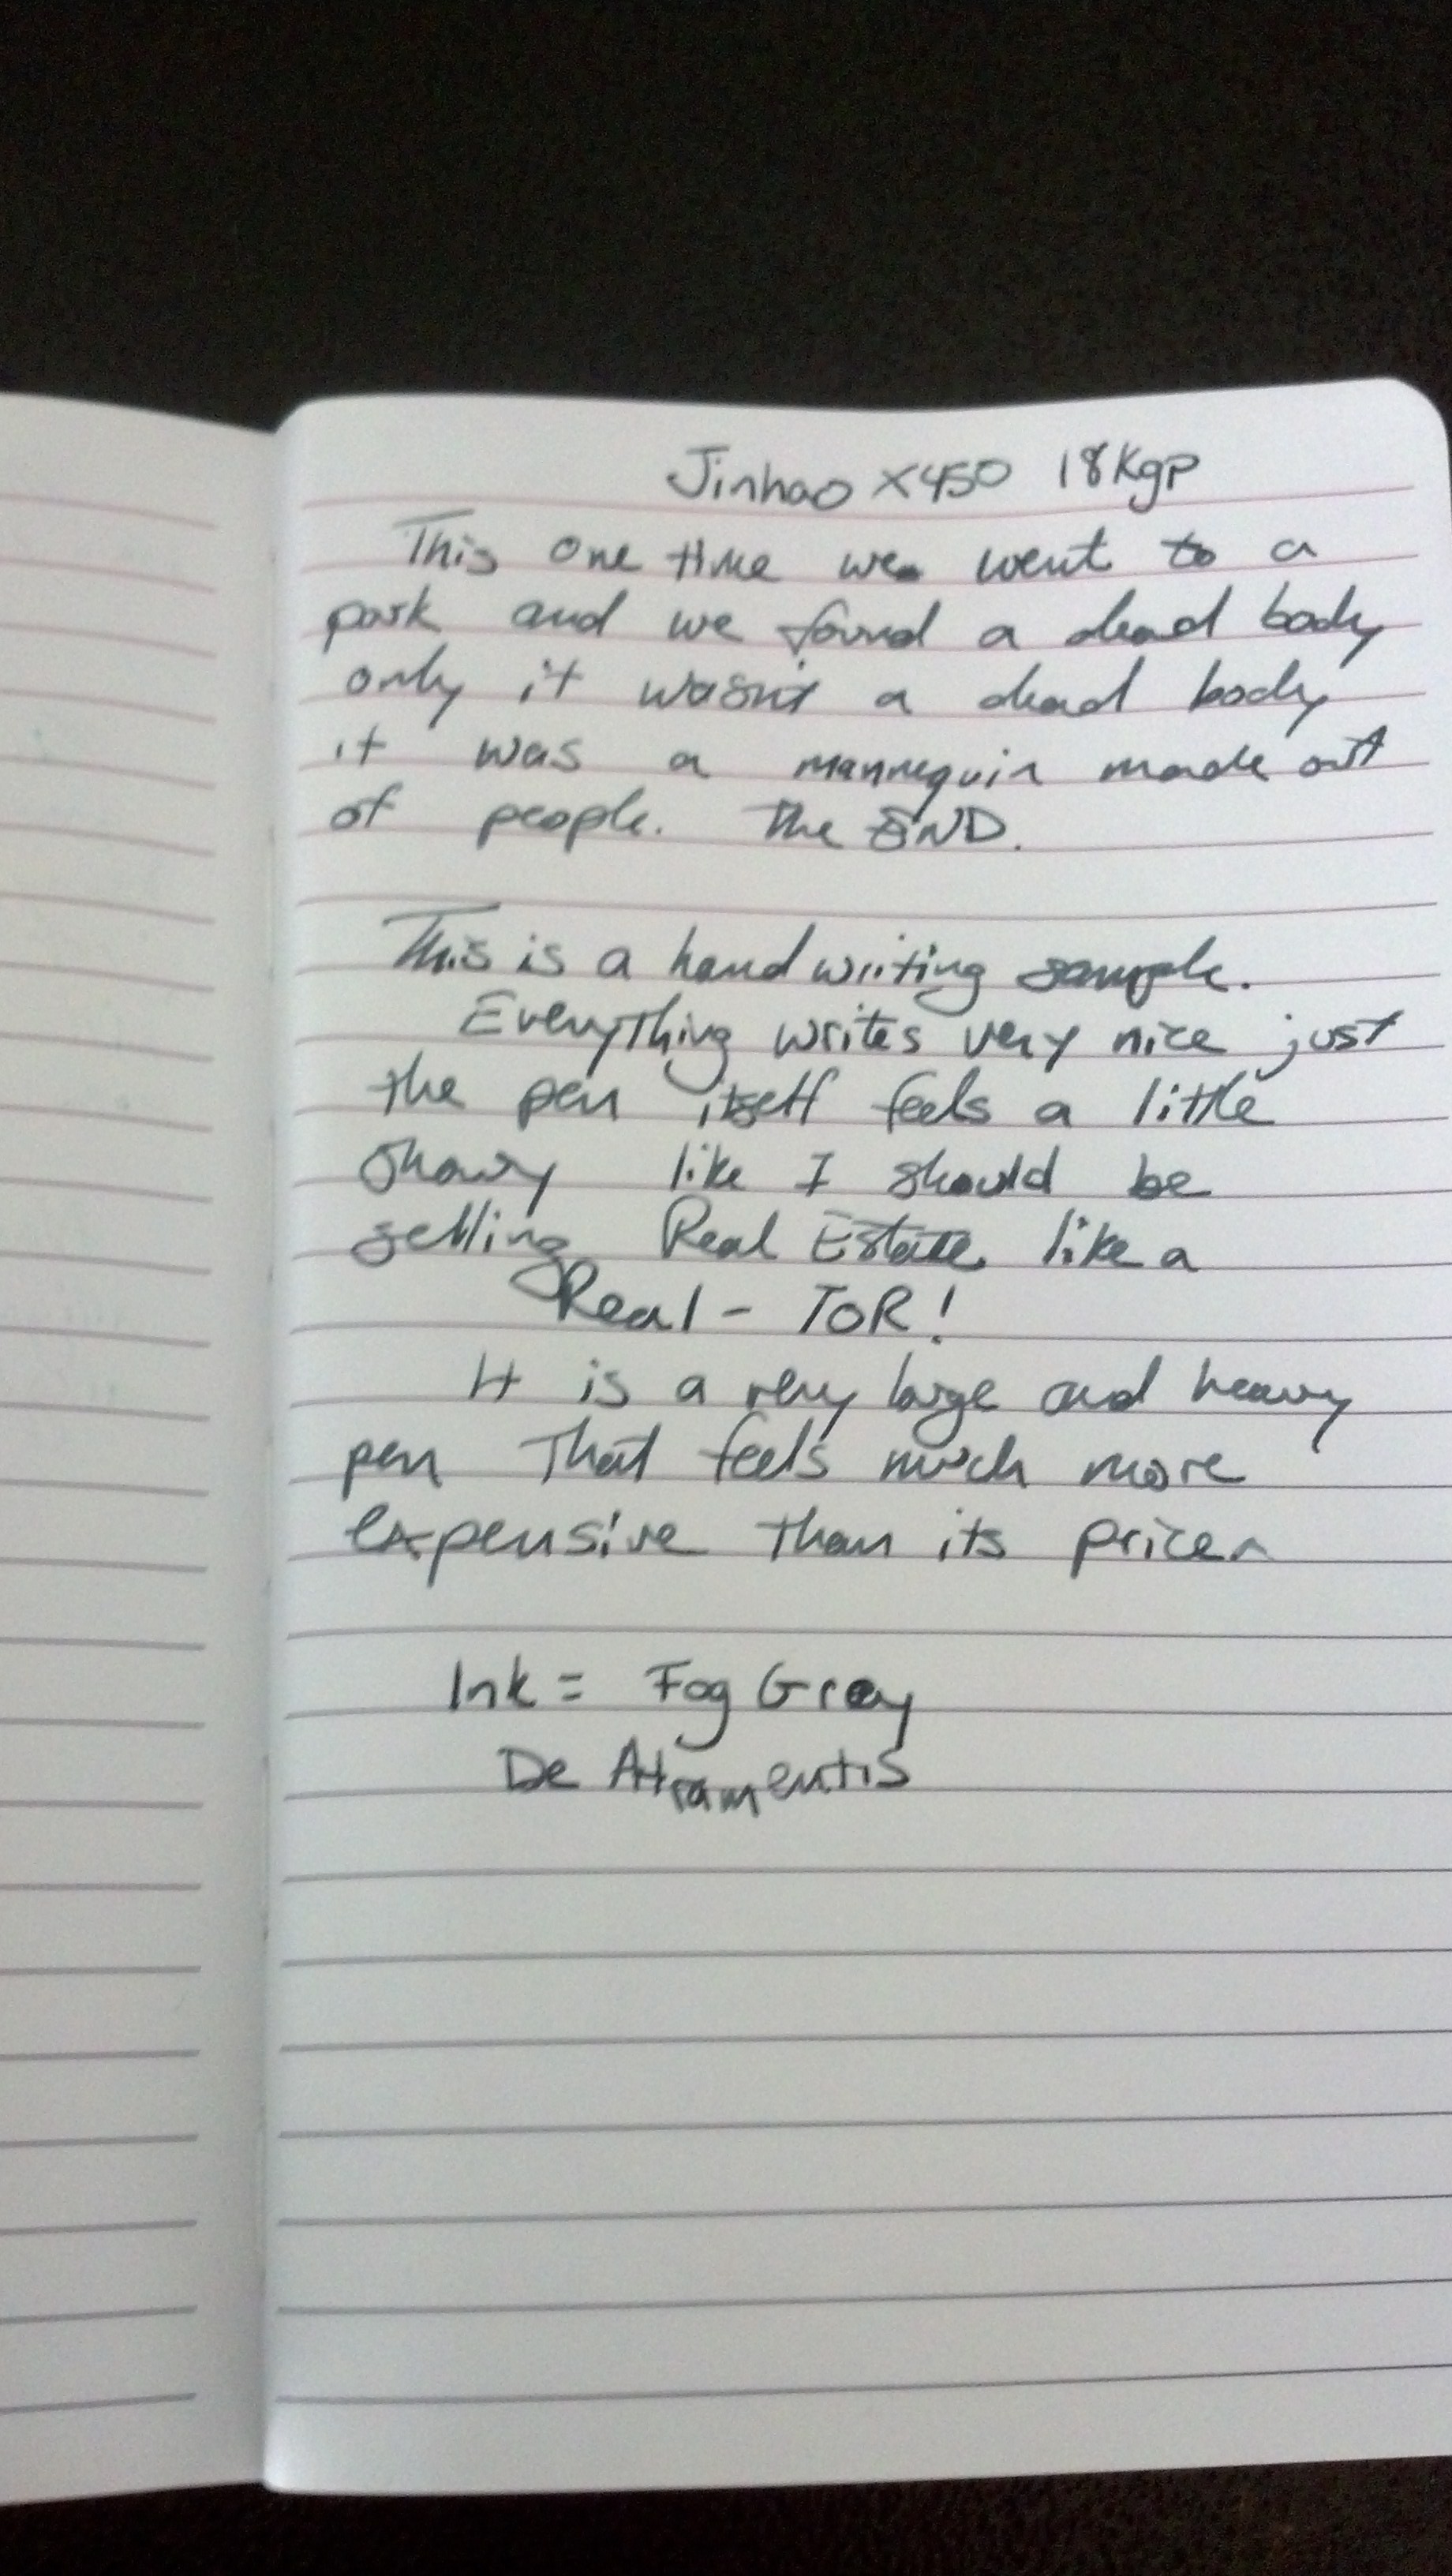 Jinhao x450 18Kgp
This one time we went to a
park and we found a dead body
only it wasn't a dead body
it was a mannequin made out
of people. The END.
This is a handwriting sample.
Everything writes very nice just
the pen itself feels a little
showy like I should be
selling Real Estate like a
Real - ToR!
It is a very large and heavy
pen That feels much more
expensive than its price.
Ink = Fog Gray
De Atramentis